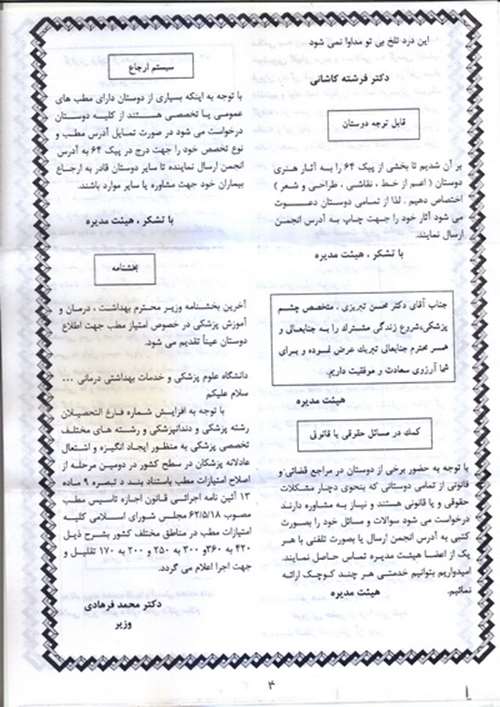 این درد تلخ بی تو مداوا نمی شود
دکتر فرشته کاشانی
قابل توجه دوستان
بر آن شدیم تا بخشی از پیک ۶۴ را به آثار هنری
دوستان ( اعم از خط ، نقاشی ، طراحی و شعر )
اختصاص دهیم . لذا از تمامی دوستان دعوت
می شود آثار خود را جهت چاپ به آدرس انجمن
ارسال نمایند.
با تشکر ، هیئت مدیره
جناب آقای دکتر محسن تبریزی ، متخصص چشم
پزشکی،شروع زندگی مشترک را به جنابعالی و
همسر محترم جنابعالی تبریک عرض نموده و برای
شما آرزوی سعادت و موفقیت داریم.
هیئت مدیره
کمک در مسائل حقوقی یا قانونی
با توجه به حضور برخی از دوستان در مراجع قضائی و
قانونی از تمامی دوستانی که بنحوی دچار مشکلات
حقوقی و یا قانونی هستند و نیاز به مشاوره دارند
درخواست می شود سوالات و مسائل خود را بصورت
کتبی به آدرس انجمن ارسال یا بصورت تلفنی با هر
یک از اعضا هیئت مدیره تماس حاصل نمایند.
امیدواریم بتوانیم خدمتی هر چند کوچک ارائه
نمائیم.
هیئت مدیره
سیستم ارجاع
با توجه به اینکه بسیاری از دوستان دارای مطب های
عمومی یا تخصصی هستند از کلیه دوستان
درخواست می شود در صورت تمایل آدرس مطب و
نوع تخصص خود را جهت درج در پیک ۶۴ به آدرس
انجمن ارسال نماینده تا سایر دوستان قادر به ارجاع
بیماران خود جهت مشاوره یا سایر موارد باشند.
با تشکر ، هیئت مدیره
بخشنامه
آخرین بخشنامه وزیر محترم بهداشت ، درمان و
آموزش پزشکی در خصوص امتیاز مطب جهت اطلاع
دوستان عیناً تقدیم می شود.
دانشگاه علوم پزشکی و خدمات بهداشتی درمانی ...
سلام علیکم
با توجه به افزایش شماره فارغ التحصیلان
رشته پزشکی و دندانپزشکی و رشته های مختلف
تخصصی پزشکی به منظور ایجاد انگیزه و اشتغال
عادلانه پزشکان در سطح کشور در دومین مرحله از
اصلاح امتیازات مطب باستناد بند د تبصره ۹ ماده
۱۳ آئین نامه اجرائی قانون اجازه تاسیس مطب
مصوب ۶۲/۵/۱۸ مجلس شورای اسلامی کلیه
امتیازات مطب در مناطق مختلف کشور بشرح ذیل
۴۲۰ به ۳۶۰و ۳۰۰ به ۲۵۰ و ۲۰۰ به ۱۷۰ تقلیل و
جهت اجرا اعلام می گردد.
دکتر محمد فرهادی
وزیر
۳